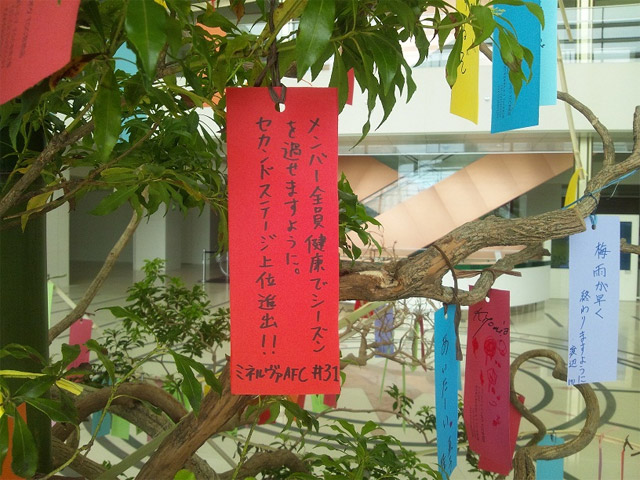 メンバー全員健康でシーズン
を過せますように。
セカンドステージ上位進出!!
ミネルヴァAFC #31
梅雨が早く
終わりますように
渡辺